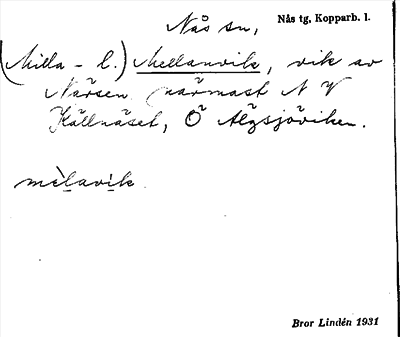 Nås sn,
Nås tg, Kopparb. l.
(Milla - l.) Mellanvik, vik av
Närsen närmast N V
Källnäset, Ö Älgsjöviken.
mèlavik
Bror Lindén 1931